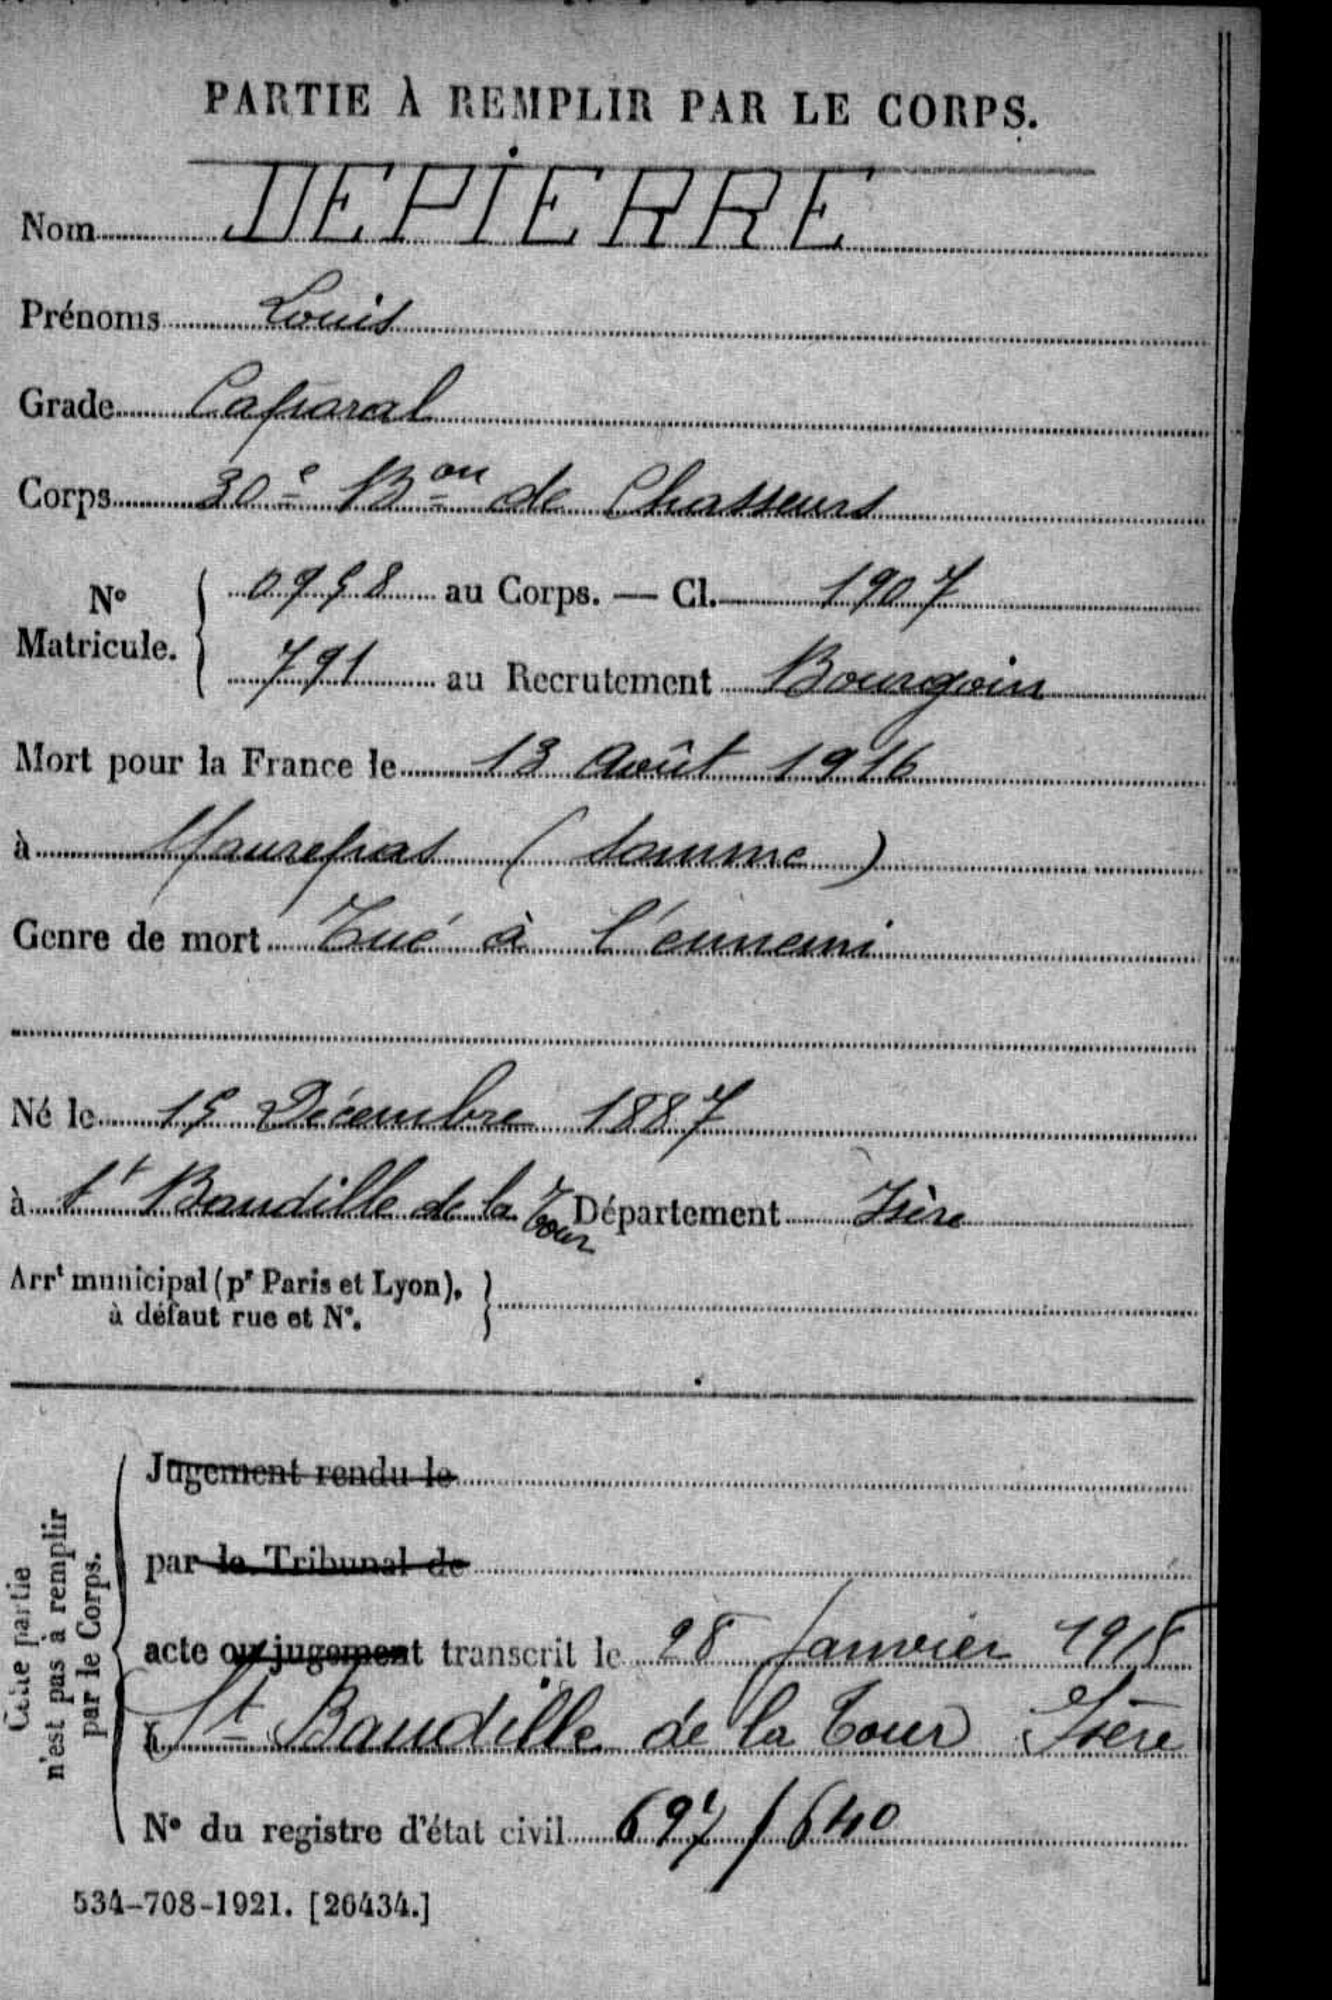 PARTIE À REMPLIR PAR LE CORPS.
Nom DEPIERRE
Prénoms Louis
Grade Caporal
Corps 30e Bon de Chasseurs
No Matricule. { 0958 au Corps. — Cl. 1907
791 au Recrutement Bourgoin
Mort pour la France le 13 Août 1916
à Maurepas (Somme)
Genre de mort Tué à l'ennemi
Né le 15 Décembre 1887
à St Baudille de la Tour Département Isère
Arrt municipal (pr Paris et Lyon), }
à défaut rue et No.
Cette partie
n'est pas à remplir
par le Corps.
Jugement rendu le
par le Tribunal de
acte ou jugement transcrit le 28 Janvier 1918
à St Baudille de la Tour Isère
No du registre d'état civil 697/640
534-708-1921. [26434.]